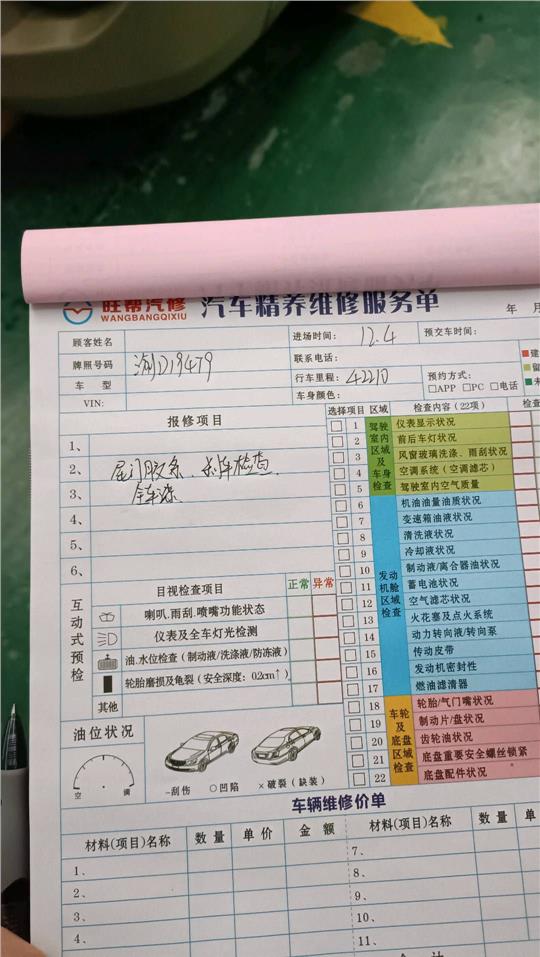 旺帮汽修
WANGBANGQIXIU
汽车精养维修服务单
年 月
顾客姓名
进场时间: 12.4
预交车时间:
牌照号码
D19479
联系电话:
车 型
行车里程: 42210
预约方式:
□APP □PC □电话
VIN:
车身颜色:
报修项目
选择项目 区域 检查内容 (22项) 检查
1、
2、
3、
4、
5、
6、
尾门胶条、杀车检查
全车漆
驾驶室内区域及车身检查
1 仪表显示状况
2 前后车灯状况
3 风窗玻璃洗涤、雨刮状况
4 空调系统 (空调滤芯)
5 驾驶室内空气质量
发动机舱区域检查
6 机油油量油质状况
7 变速箱油液状况
8 清洗液状况
9 冷却液状况
10 制动液/离合器油状况
11 蓄电池状况
12 空气滤芯状况
13 火花塞及点火系统
14 动力转向液/转向泵
15 传动皮带
16 发动机密封性
17 燃油滤清器
车轮及底盘区域检查
18 轮胎/气门嘴状况
19 制动片/盘状况
20 齿轮油状况
21 底盘重要安全螺丝锁紧
22 底盘配件状况
互动式预检
目视检查项目 正常 异常
喇叭.雨刮.喷嘴功能状态
仪表及全车灯光检测
油.水位检查 (制动液/洗涤液/防冻液)
轮胎磨损及龟裂 (安全深度: 0.2cm↑)
其他
油位状况
空 满
-刮伤 ○凹陷 ×破裂 (缺装)
车辆维修价单
材料(项目)名称 数 量 单 价 金 额 材料(项目)名称 数 量 单
1、
2、
3、
4、
7、
8、
9、
10、
11、